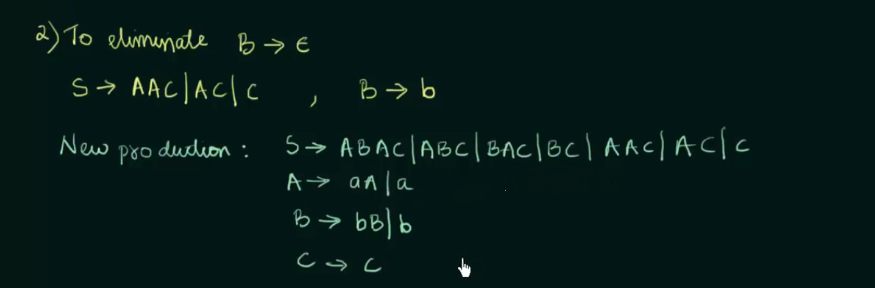 2) To eliminate B → ϵ
S → AAC | AC | C , B → b
New production : S → ABAC | ABC | BAC | BC | AAC | AC | C
A → aA | a
B → bB | b
C → c